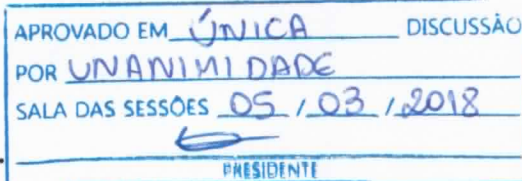 APROVADO EM ÚNICA DISCUSSÃO
POR UNANIMIDADE
SALA DAS SESSÕES 05 / 03 / 2018
PRESIDENTE